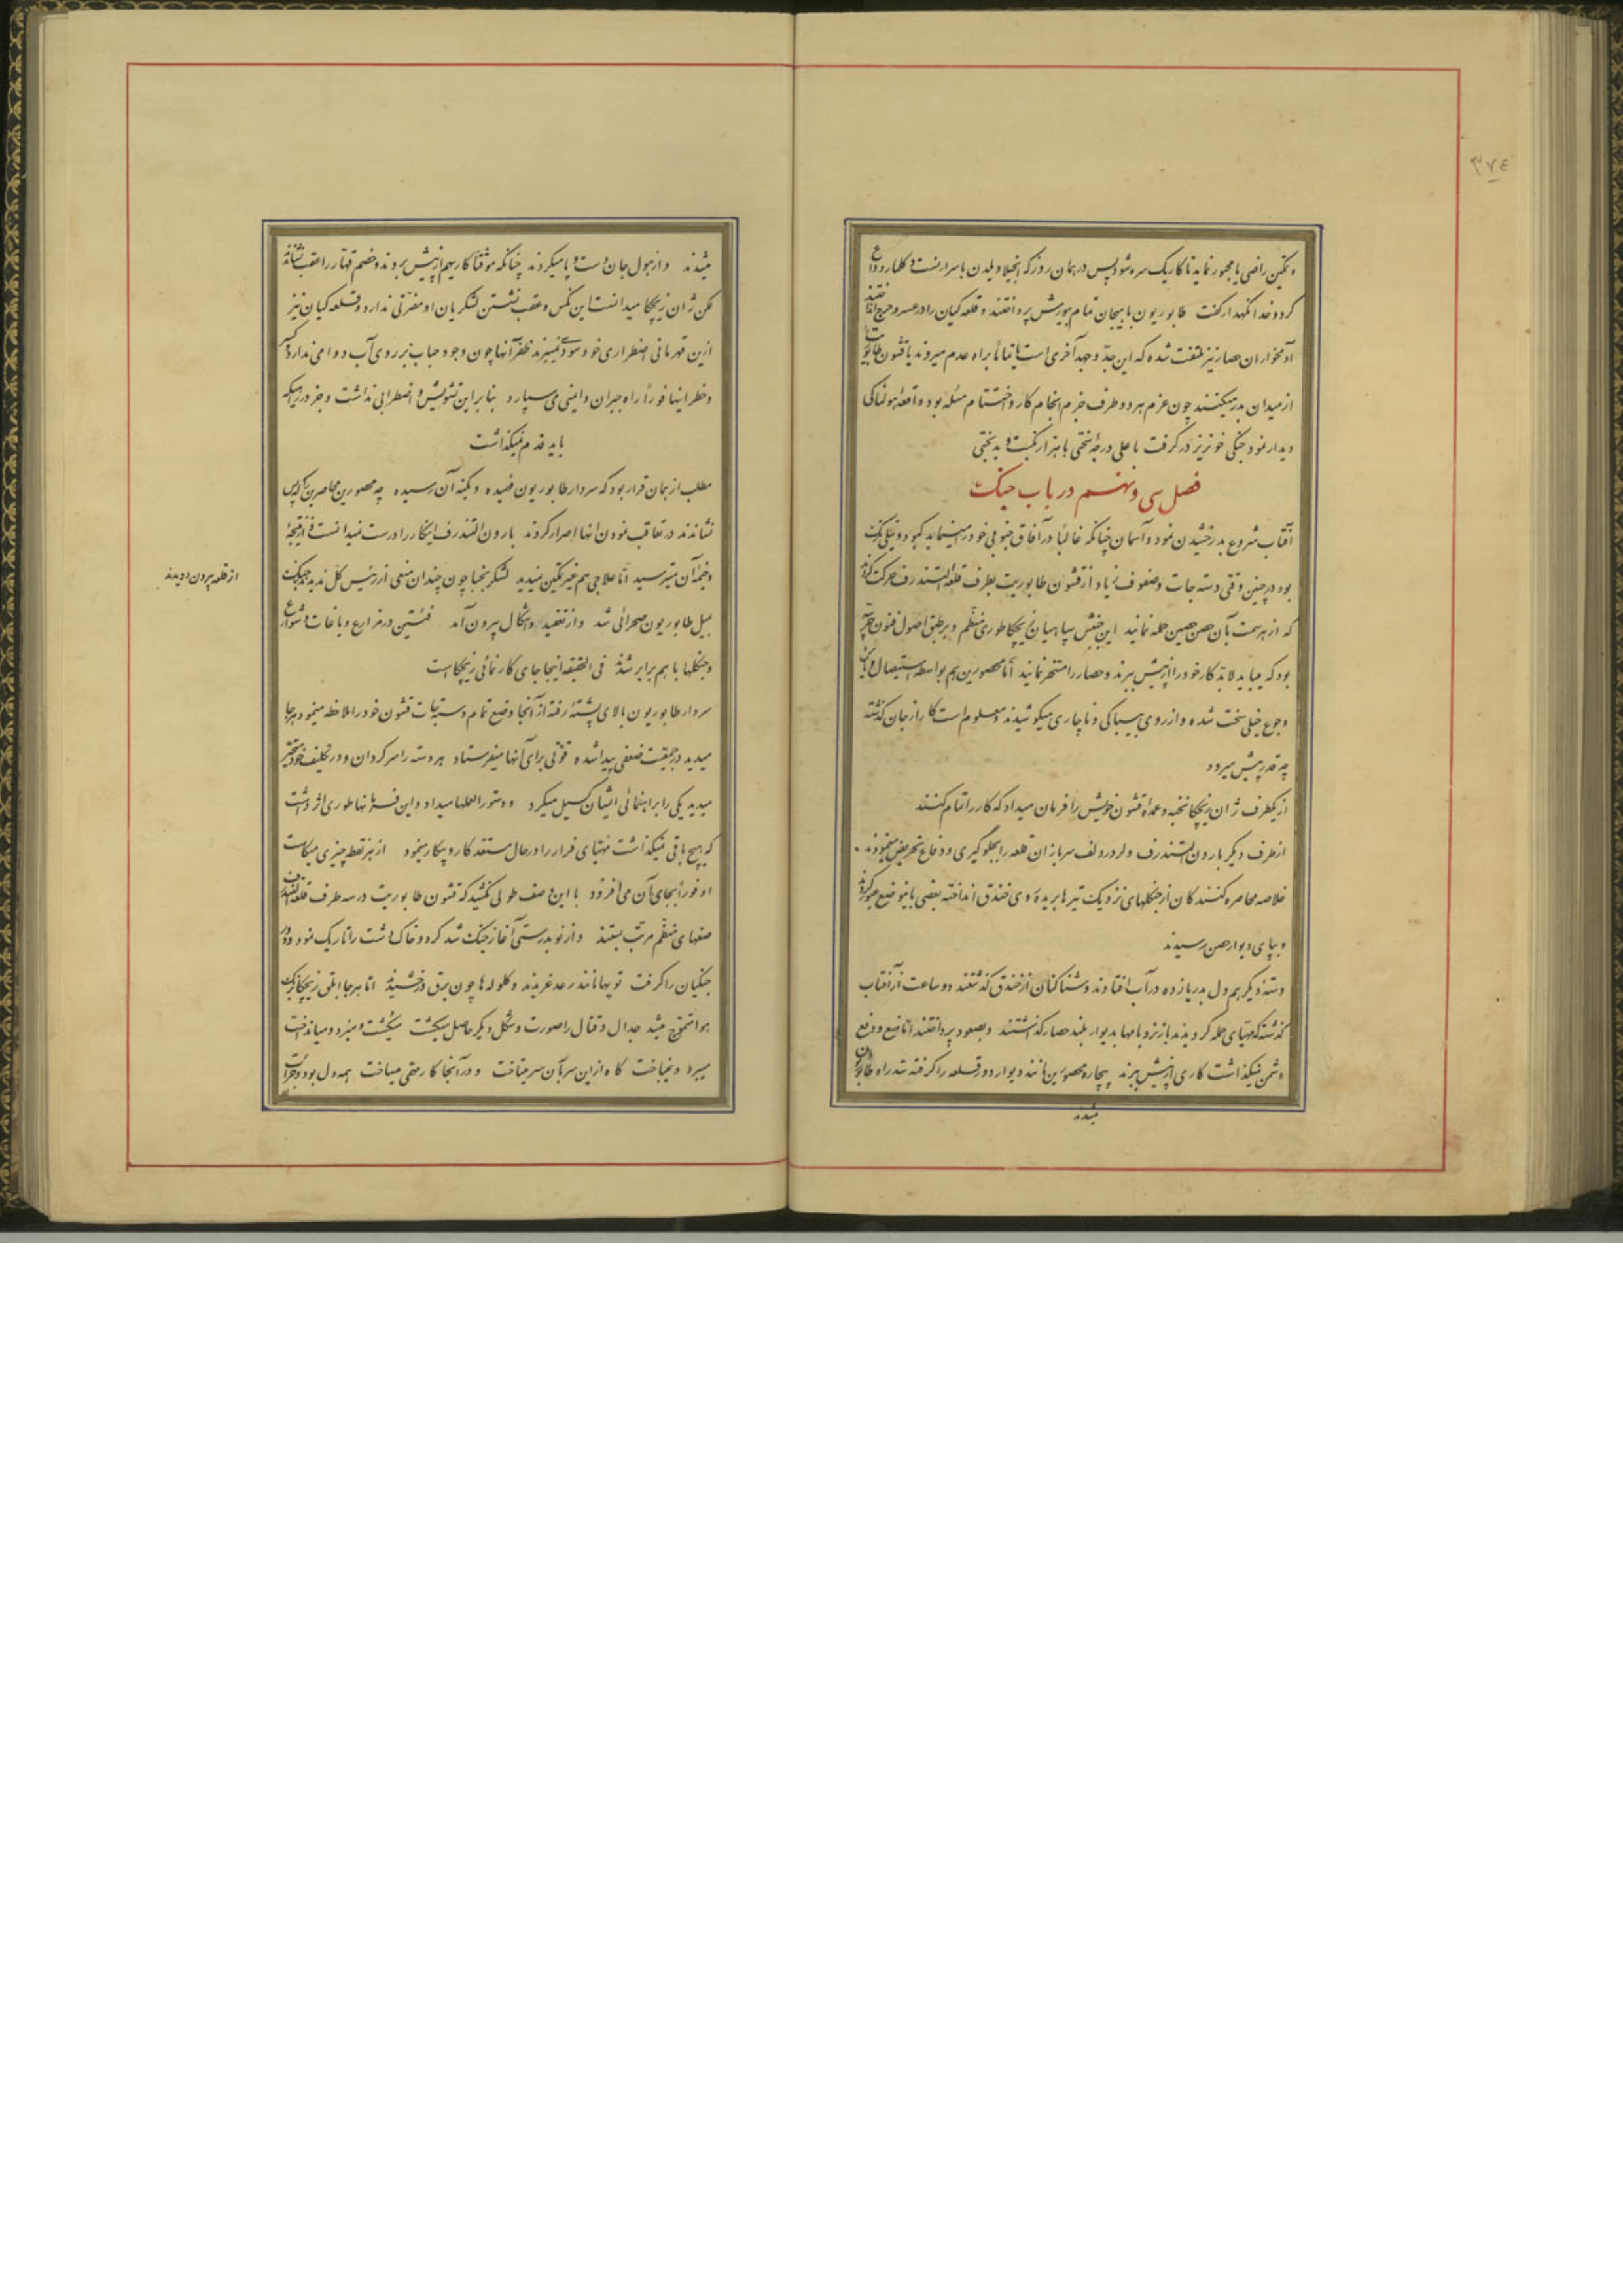 ۳۷٤
و تمکین راضی یا مجبور نماید تا کار یک سره شود پس در همان روز که انجیلا ویلدن با سرارنست و کلمارو وداع
کرد و خدا نگهدار گفت طابوریون با هیجان تمام بیورش پرداختند و قلعه کیان را در عسر و حرج انداختند
آدمخواران حصار نیز ملتفت شده که این جدّ و جهد آخری است یا تماماً براه عدم میروند یا قشون طابوریت را
از میدان بدر میکنند چون عزم هر دو طرف جزم انجام کار و اختتام مسئله بود واقعهٔ هولناکی
دیدار نمود جنگی خونریز در گرفت با علی درجهٔ سختی با هزار نکبت و بدبختی
فصل سی و نهم در باب جنگ
آفتاب شروع بدرخشیدن نمود و آسمان چنانکه غالباً در آفاق جنوبی خود را مینماید کبود و نیلی رنگ
بود در چنین وقتی دسته جات و صفوف زیاد از قشون طابوریت بطرف قلعه الشندرف حرکت کردند
که از هر سمت بآن حصن حصین حمله نمایند این جنبش سپاهیان زیچکا طوری منظّم و بر طبق اصول فنون حربیّه
بود که میباید لابد کار خود را از پیش ببرند و حصار را مسخّر نمایند امّا محصورین هم بواسطه استیصال و
و جوع خیلی سخت شده و از روی بیباکی و ناچاری میکوشیدند و معلوم است کار از جان گذشته
چه قدر پیش میرود
از یکطرف ژان زیچکا نخبه و عمده قشون خویش را فرمان میداد که کار را تمام کنند
از طرف دیگر بارون الشندرف و لرد ردلف سربازان قلعه را بجلوگیری و دفاع تحریض مینمودند
خلاصه محاصره کنندگان از جنگلهای نزدیک تیرها بریده روی خندق انداخته بعضی باینوضع عبور کردند
و بپای دیوار حصن رسیدند
دسته دیگر هم دل بدریا زده در آب افتادند و شنا کنان از خندق گذشتند دو ساعت از آفتاب
گذشته که مهیّای حمله گردیدند باز نردبامها بدیوار بلند حصار گذاشتند و بصعود پرداختند امّا منع و دفع
دشمن نمیگذاشت کاری از پیش ببرند بیچاره محصورین مانند دیوار دور قلعه را گرفته سدّ راه طابوریون
میشدند
میشدند و از هول جان دست و پا میکردند چنانکه موقتاً کار بهم از پیش بردند و خصم قهّار را عقب نشاندند
لکن ژان زیچکا میدانست این نکس و عقب نشستن لشکریان او مضرّتی ندارد و قلعه کیان نیز
ازین قهرمانی اضطراری خود سودی نمیبرند ظفر آنها چون وجود حباب بر روی آب دوامی ندارد
و خطر اینها فوراً راه جبران و ایمنی می سپارد بنا براین تشویش و اضطرابی نداشت و جز در
باید قدم نمیگذاشت
مطلب از همان قرار بود که سردار طابوریون فهمیده و بکنه آن رسیده چه محصورین محاصرین را که پس
نشاندند در تعاقب نمودن آنها اصرار کردند بارون الشندرف اینکار را درست نمیدانست و از نتیجهٔ
وخیمهٔ آن میترسید امّا علاجی هم غیر تمکین نمیدید لشکر بختیا چون چندان منعی از رئیس کل ندید
از قلعه بیرون دویدند
میل طابوریون صحرائی شد و از تنقید و شکال بیرون آمد فئتین در مزارع و باغات و شوارع
و جنگلها با هم برابر شدند فی الحقیقه اینجا جای کار نمائی زیچکاست
سردار طابوریون بالای پشتهٔ رفته از آنجا وضع تمام دسته جات قشون خود را ملاحظه مینمود هر جا
میدید در جمعیّت ضعفی پیدا شده قوّتی برای آنها میفرستاد هر دسته را سرگردان و در تکلیف خود متحیّر
میدید یکی را براهنمائی ایشان گسیل میکرد و دستورالعملها میداد و این فرمانها طوری اثر داشت
که هیچ باقی نمیگذاشت مهیّای فرار را در حال مستعد کار و پیکار مینمود از هر نقطه چیزی میکاست
او فوراً بجای آن می افزود با این وصف طولی نکشید که قشون طابوریت در سه طرف قلعه الشندرف
صفهای منظّم مرتّب بستند و از نو بدرستی آغاز جنگ شد گرد و خاک دشت را تاریک نمود و دور
جنگیان را گرفت توپها مانند رعد غریدند و گلوله ها چون برق درخشیدند امّا هر جا ابلق زیچکا بزرگ
هوا متموّج میشد جدال و قتال را صورت و شکل دیگر حاصل میگشت میکشت و میزد و میانداخت
میبرد و نمیباخت گاه ازین سر بآن سر میتاخت و در آنجا کار خصم میساخت همه دل بود و جرأت